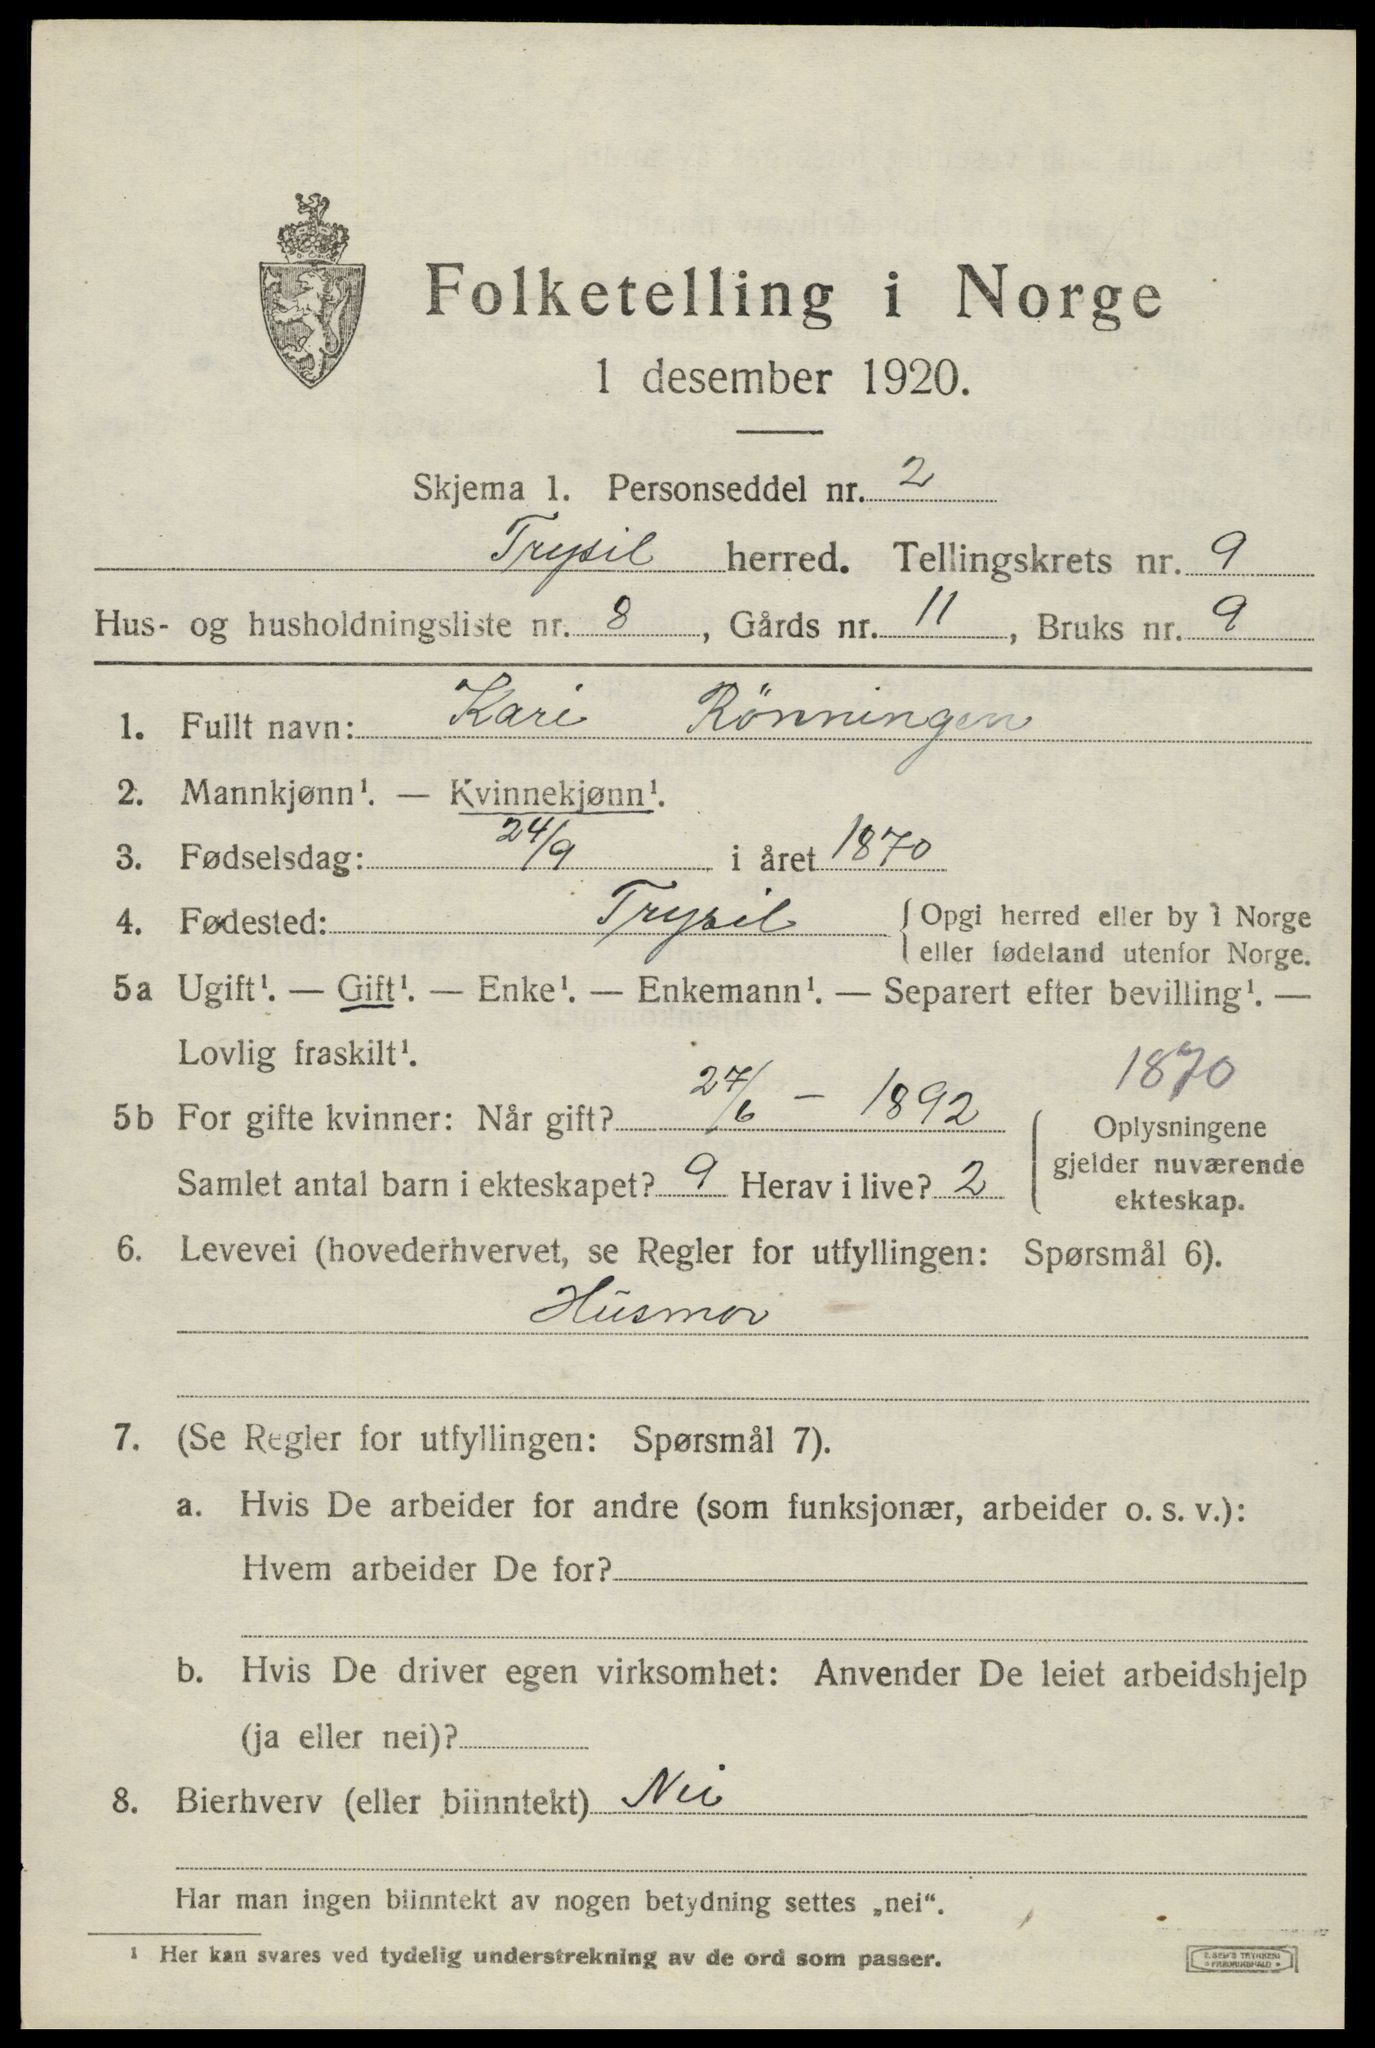 Folketelling i Norge
1 desember 1920.
Skjema 1. Personseddel nr. 2
Trysil herred. Tellingskrets nr. 9
Hus- og husholdningsliste nr. 8, Gårds nr. 11, Bruks nr. 9
1. Fullt navn: Kari Rönningen
2. Mannkjønn¹. — Kvinnekjønn¹.
3. Fødselsdag: 24/9 i året 1870
4. Fødested: Trysil { Opgi herred eller by i Norge
eller fødeland utenfor Norge.
5a Ugift¹. — Gift¹. — Enke¹. — Enkemann¹. — Separert efter bevilling¹. —
Lovlig fraskilt¹.
1870
5b For gifte kvinner: Når gift? 27/6 - 1892
Samlet antal barn i ekteskapet? 9 Herav i live? 2
Oplysningene
gjelder nuværende
ekteskap.
6. Levevei (hovederhvervet, se Regler for utfyllingen: Spørsmål 6).
Husmor
7. (Se Regler for utfyllingen: Spørsmål 7).
a. Hvis De arbeider for andre (som funksjonær, arbeider o. s. v.):
Hvem arbeider De for?
b. Hvis De driver egen virksomhet: Anvender De leiet arbeidshjelp
(ja eller nei)?
8. Bierhverv (eller biinntekt) Nei
Har man ingen biinntekt av nogen betydning settes „nei“.
¹ Her kan svares ved tydelig understrekning av de ord som passer.
E. SEM'S TRYKKERI
FREDRIKSHALD